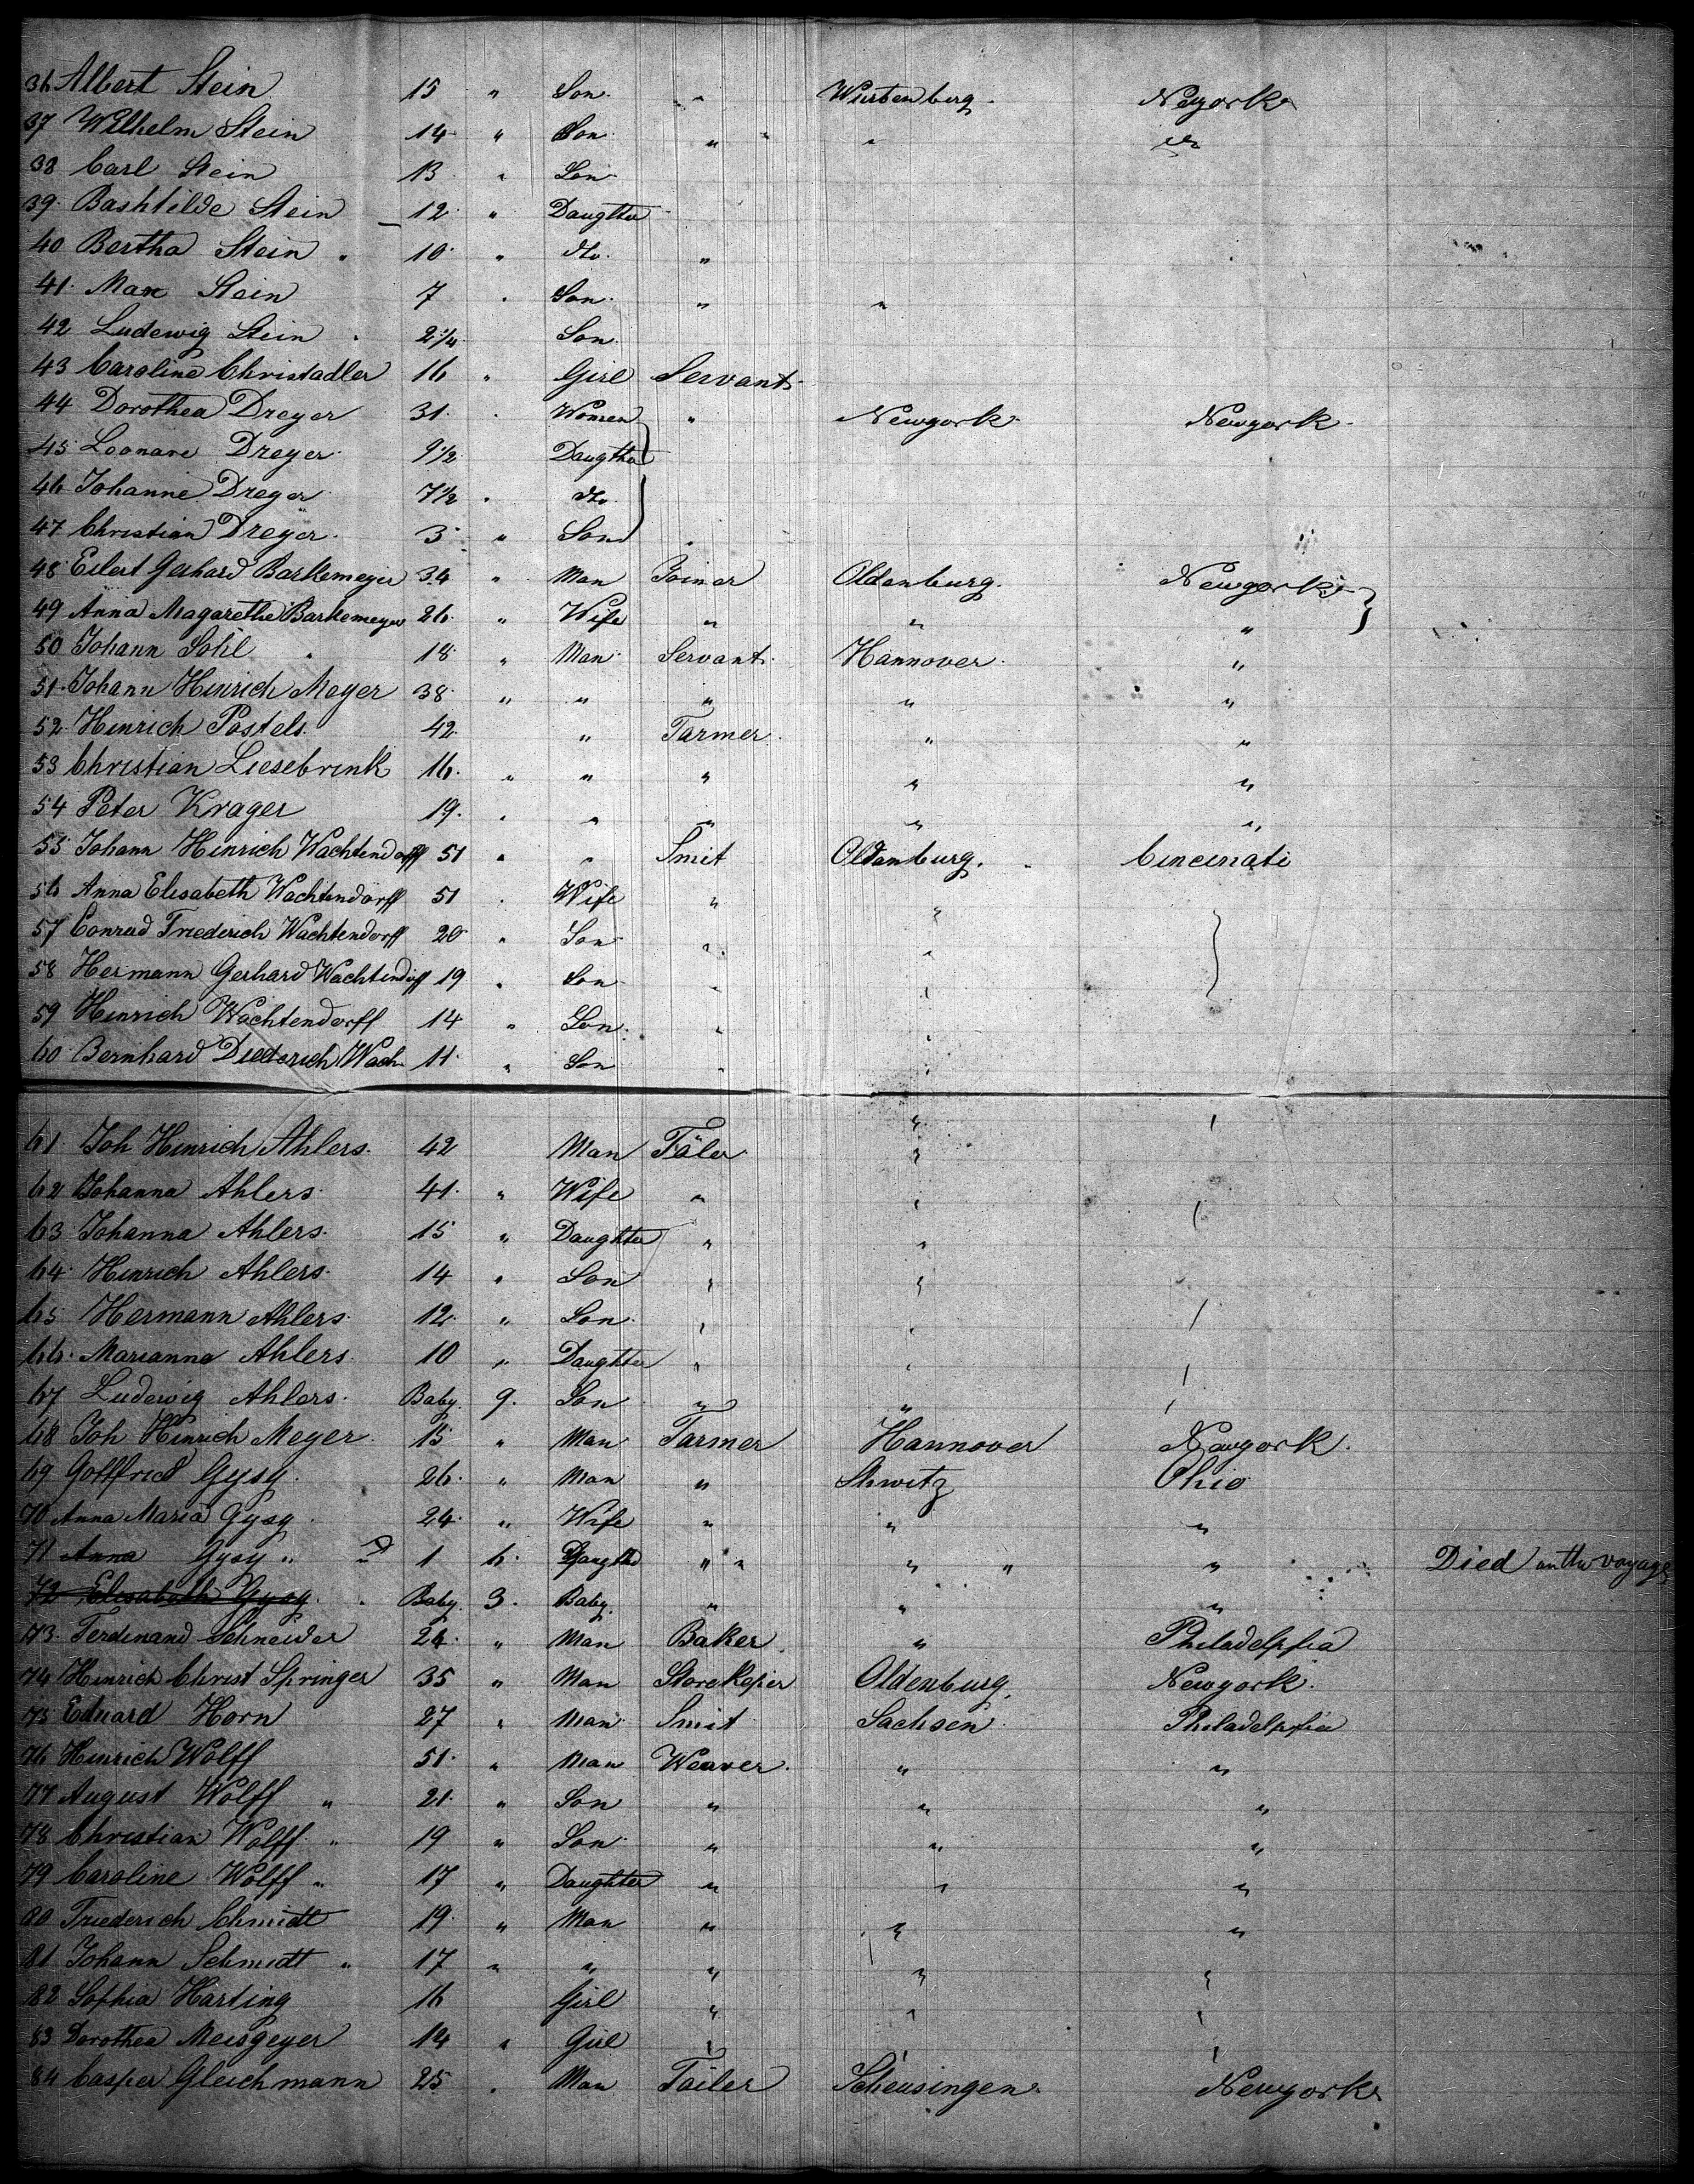 36 Albert Stein 15 " Son. " Würtenberg. Newyork
37 Wilhelm Stein 14 " Son " " do
38 Carl Stein 13 " Son
39. Bashtilde Stein 12 " Daugtter
40 Bertha Stein " 10. " do. "
41. Max Stein 7 " Son. " "
42 Ludewig Stein 2 1/4 Son.
43 Caroline Christadler 16 " Girl Servant.
44 Dorothea Dreyer 31. " Women " Newyork Newyork.
45 Leonare Dreyer. 9 1/2 Daugther
46 Johanne Dreyer 7 1/2 " do.
47 Christian Dreyer. 3 " Son "
48 Eilert Gerhard Barkemeyer 34 " Man Joiner Oldenburg. Newyork
49 Anna Magarethe Barkemeyer 26. " Wife " " "
50 Johann Sohl 18 " Man Servant. Hannover. "
51. Johann Hinrich Meyer 38. " " " " "
52. Hinrich Postels. 42. " Farmer. " "
53 Christian Liesebrink 16. " " " " "
54 Peter Krager 19. " " " " "
55 Johann Hinrich Wachtendorff 51 " " Smit Oldenburg. Cincinati
56 Anna Elisabeth Wachtendorff 51 " Wife " "
57 Conrad Friederich Wachtendorff 20 " Son " "
58 Hermann Gerhard Wachtendorff 19 " Son " "
59 Hinrich Wachtendorff 14 " Son. " "
60. Bernhard Diederich Wach. 11. " Son " "
61 Joh Hinrich Ahlers. 42 Man Täler "
62 Johanna Ahlers. 41. " Wife " "
63 Johanna Ahlers. 15 " Daughter " "
64. Hinrich Ahlers. 14 " Son " "
65 Hermann Ahlers. 12. " Son. " "
66. Marianna Ahlers. 10 " Daughter " "
67 Ludewig Ahlers. Baby. 9. Son " "
68 Joh Hinrich Meyer. 15 " Man Farmer Hannover Newyork.
69 Gottfried Gysy. 26. " Man " Shwitz Ohio
70 Anna Maria Gysy. 24. " Wife " " "
71 Anna Gysy " 1 6. Daugther " " " " Died on the voyage
72 Elisabeth Gysy. Baby. 3. Baby. " " "
73. Ferdinand Schneider 24. " Man Baker. " Philadelpfia
74 Hinrich Christ Springer 35 " Man Storekepier Oldenburg. Newyork.
75 Eduard Horn 27 " Man Smit Sachsen. Philadelpfia
76 Hinrich Wolff 51. " Man Weaver. " "
77 August Wolff " 21. " Son " " "
78 Christian Wolff " 19 " Son " " "
79 Caroline Wolff " 17 " Daughter " " "
80 Friederich Schmidt 19. " Man " " "
81 Johann Schmidt " 17 " " " " "
82 Sophia Harting 16 Girl " "
83 Dorothea Meisgeyer 14 " Girl
84 Casper Gleichmann 25 " Man Tailer Scheusingen. Newyork